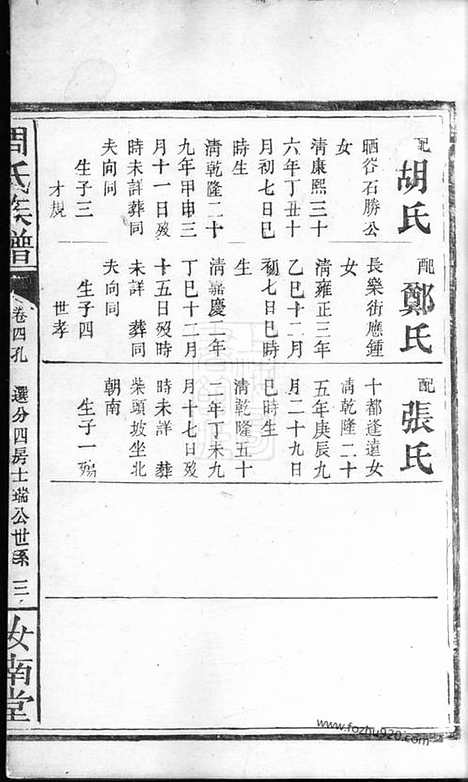 配胡氏
晒谷石勝公
女
清康熙三十
六年丁丑十
月初七日巳
時生
清乾隆二十
九年甲申三
月十一日歿
時未詳葬同
夫向同
生子三
才規
配鄭氏
長樂街應鍾
女
清雍正三年
乙巳十二月
初七日巳時
生
清嘉慶二年
丁巳十二月
十五日歿時
未詳 葬同
夫向同
生子四
世孝
配張氏
十都逢遠女
清乾隆二十
五年庚辰九
月二十九日
巳時生
清乾隆五十
二年丁未九
月十七日歿
時未詳 葬
柴頭坡坐北
朝南
生子一殤
周氏族譜
卷四孔 選分四房士瑞公世系 三
汝南堂
www.fozhu920.com